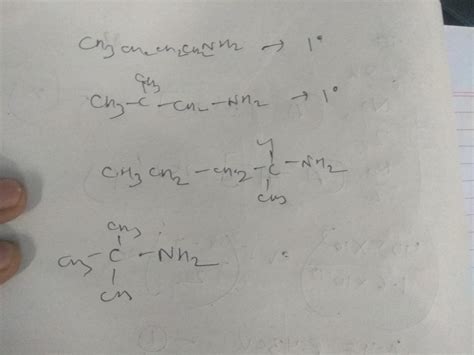 CH3CH2CH2CH2NH2 → 1°
CH3
CH3-C-CH2-NH2 → 1°
CH3CH2-CH2-C-NH2
CH3
CH3
CH3-C-NH2
CH3